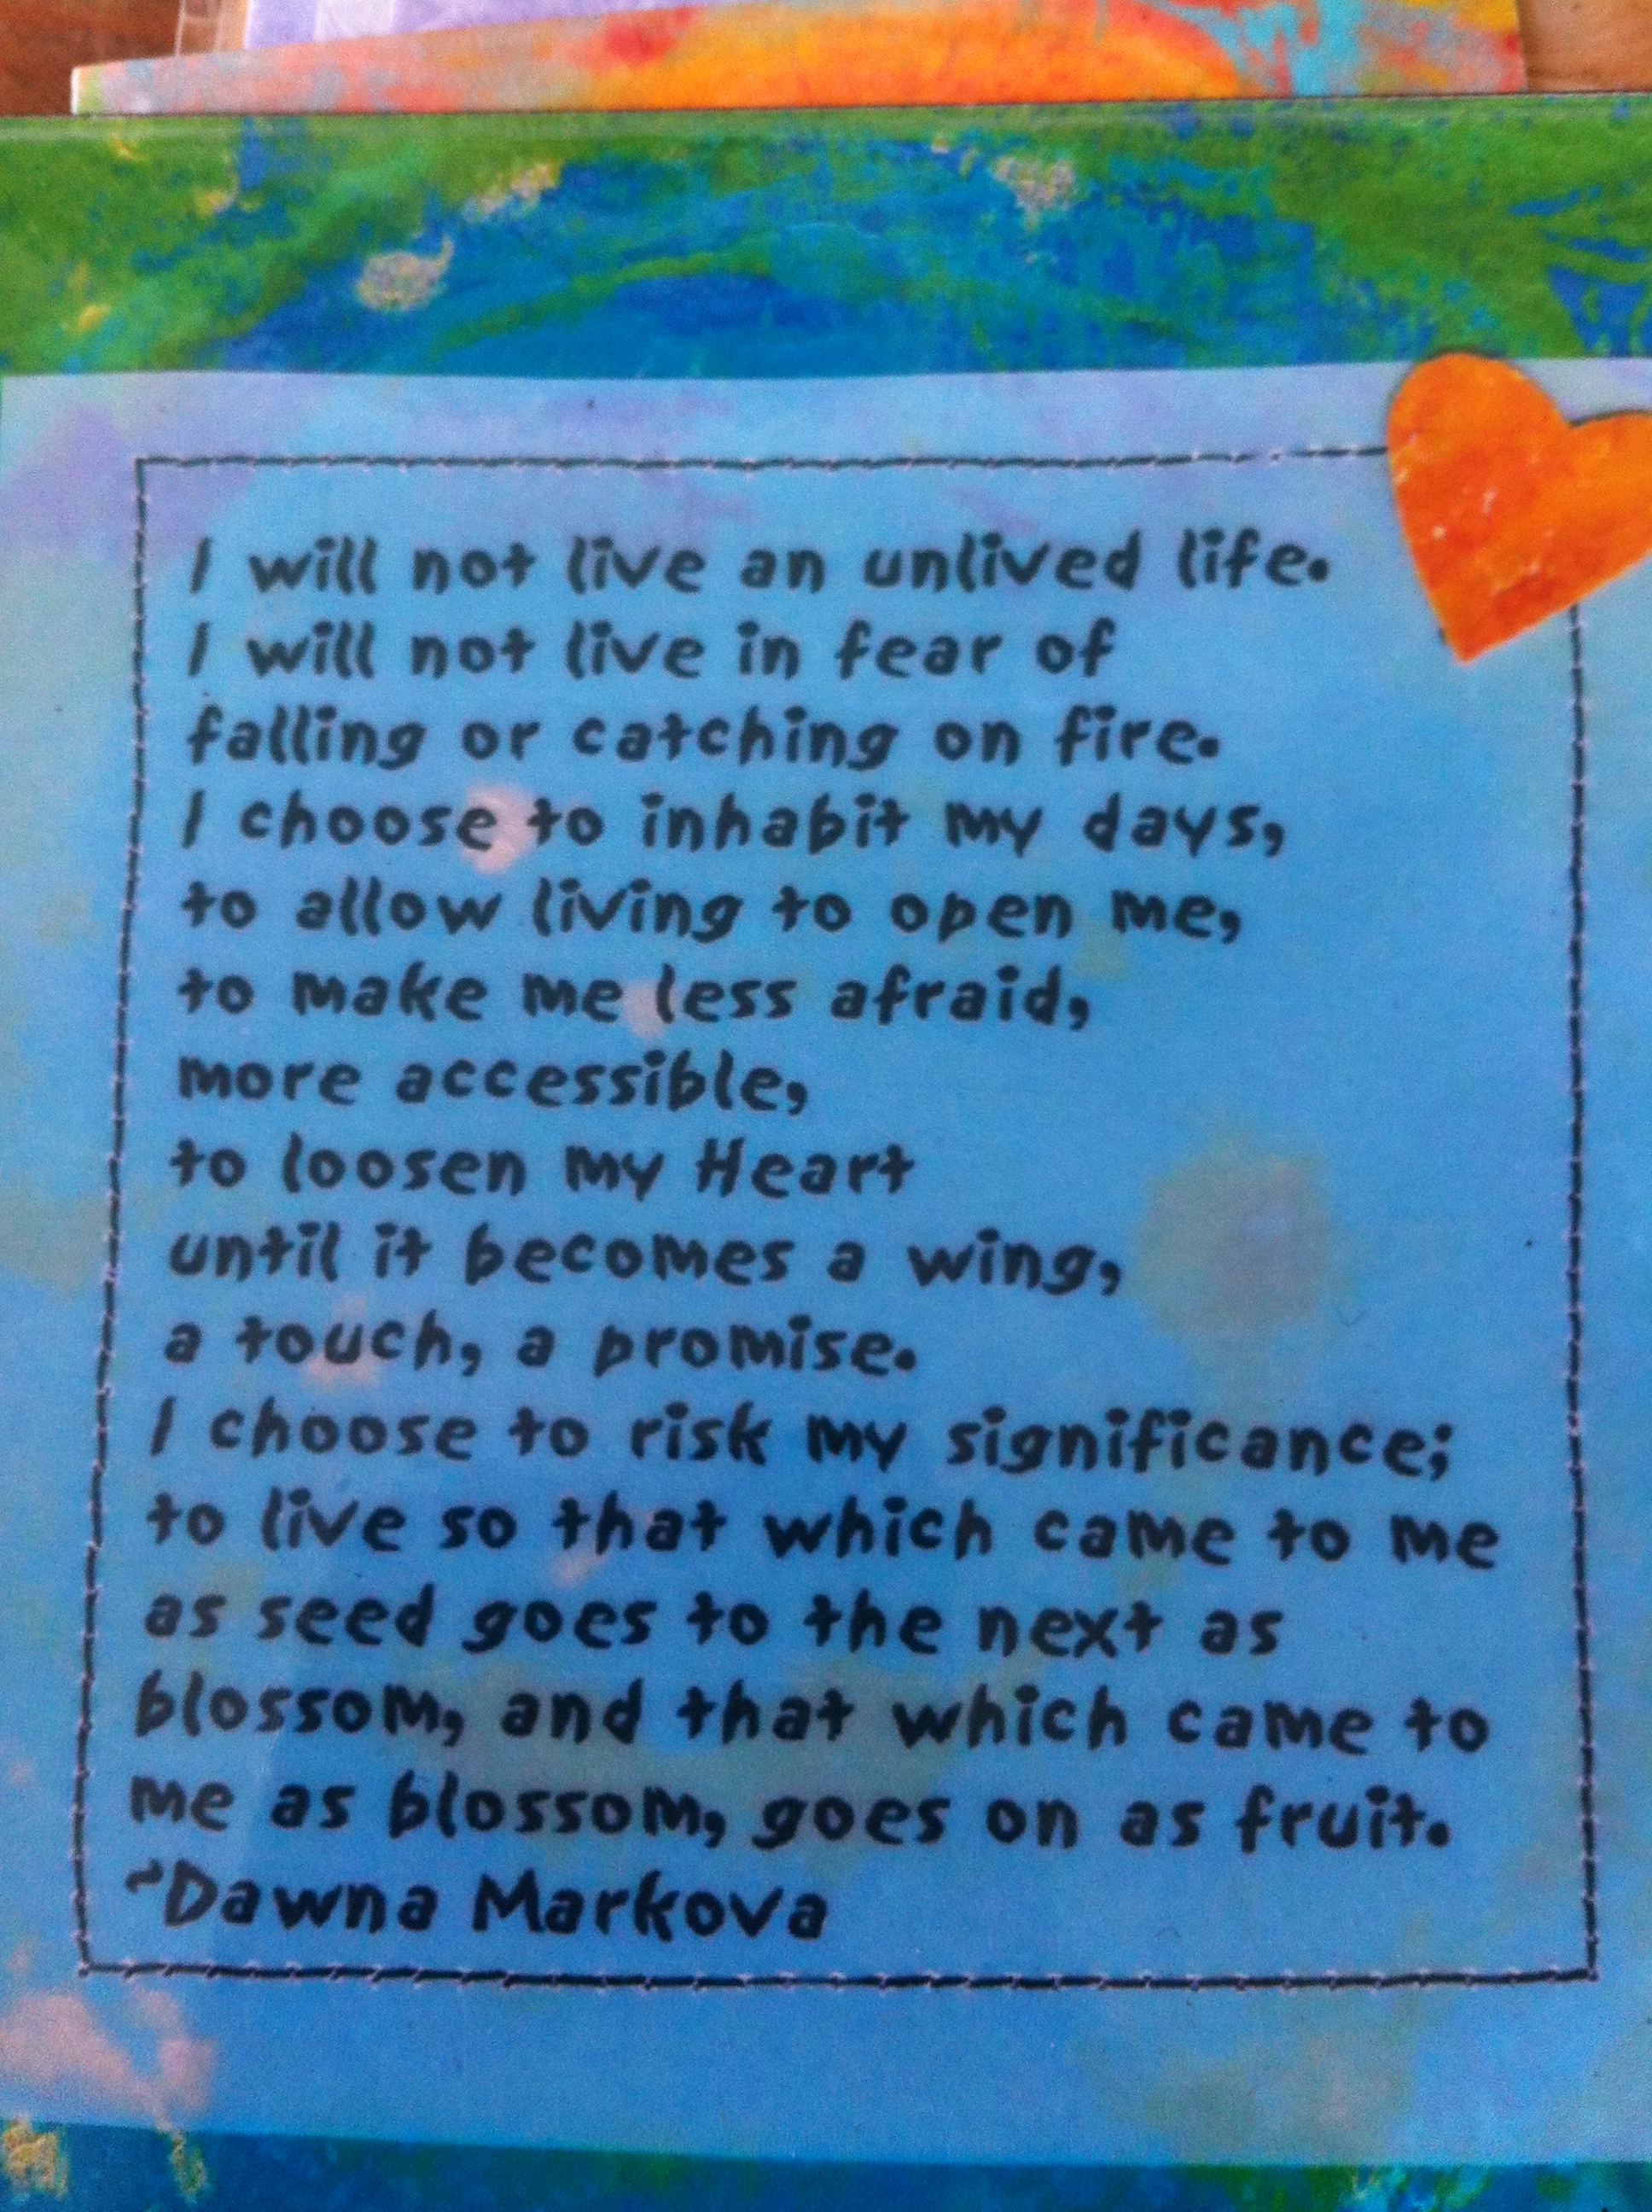 I will not live an unlived life.
I will not live in fear of
falling or catching on fire.
I choose to inhabit my days,
to allow living to open me,
to make me less afraid,
more accessible,
to loosen my Heart
until it becomes a wing,
a touch, a promise.
I choose to risk my significance;
to live so that which came to me
as seed goes to the next as
blossom, and that which came to
me as blossom, goes on as fruit.
~Dawna Markova